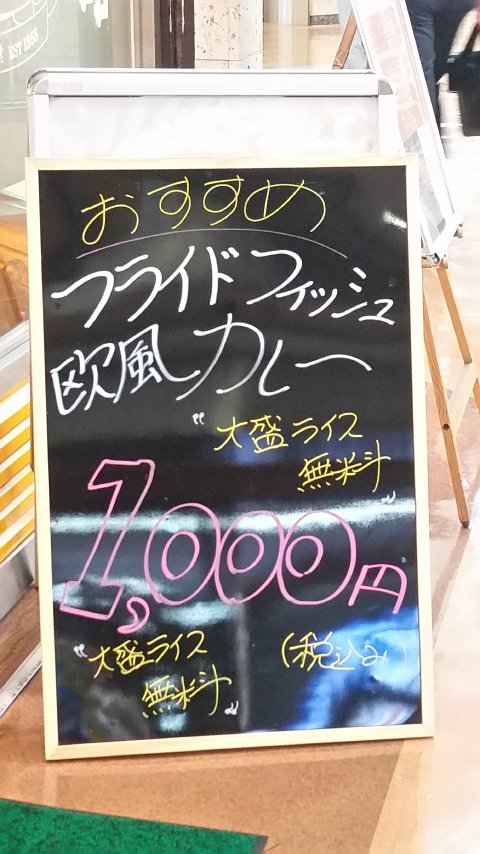 EST 1958
おすすめ
フライドフィッシュ
欧風カレー
"大盛ライス
無料"
1,000円
"大盛ライス
無料"
(税込み)